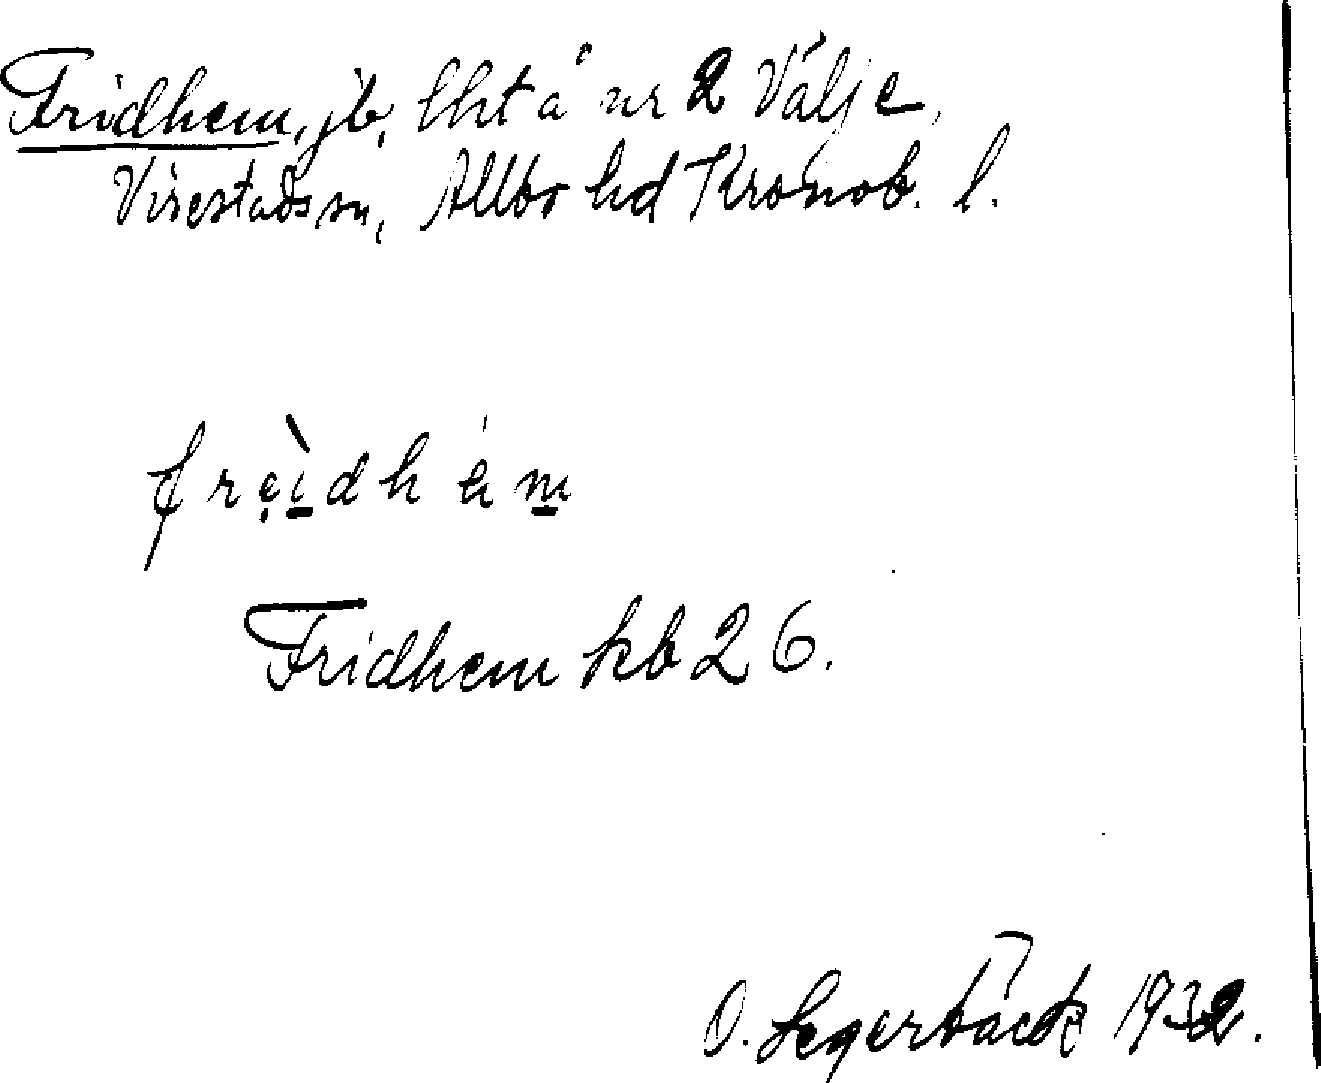 Fridhem, jb, lht å nr 2 Välje,
Virestads sn, Allbo hd Kronob. l.
frẹìdhèm
Fridhem kb 26.
O. Segerbäck 1932.